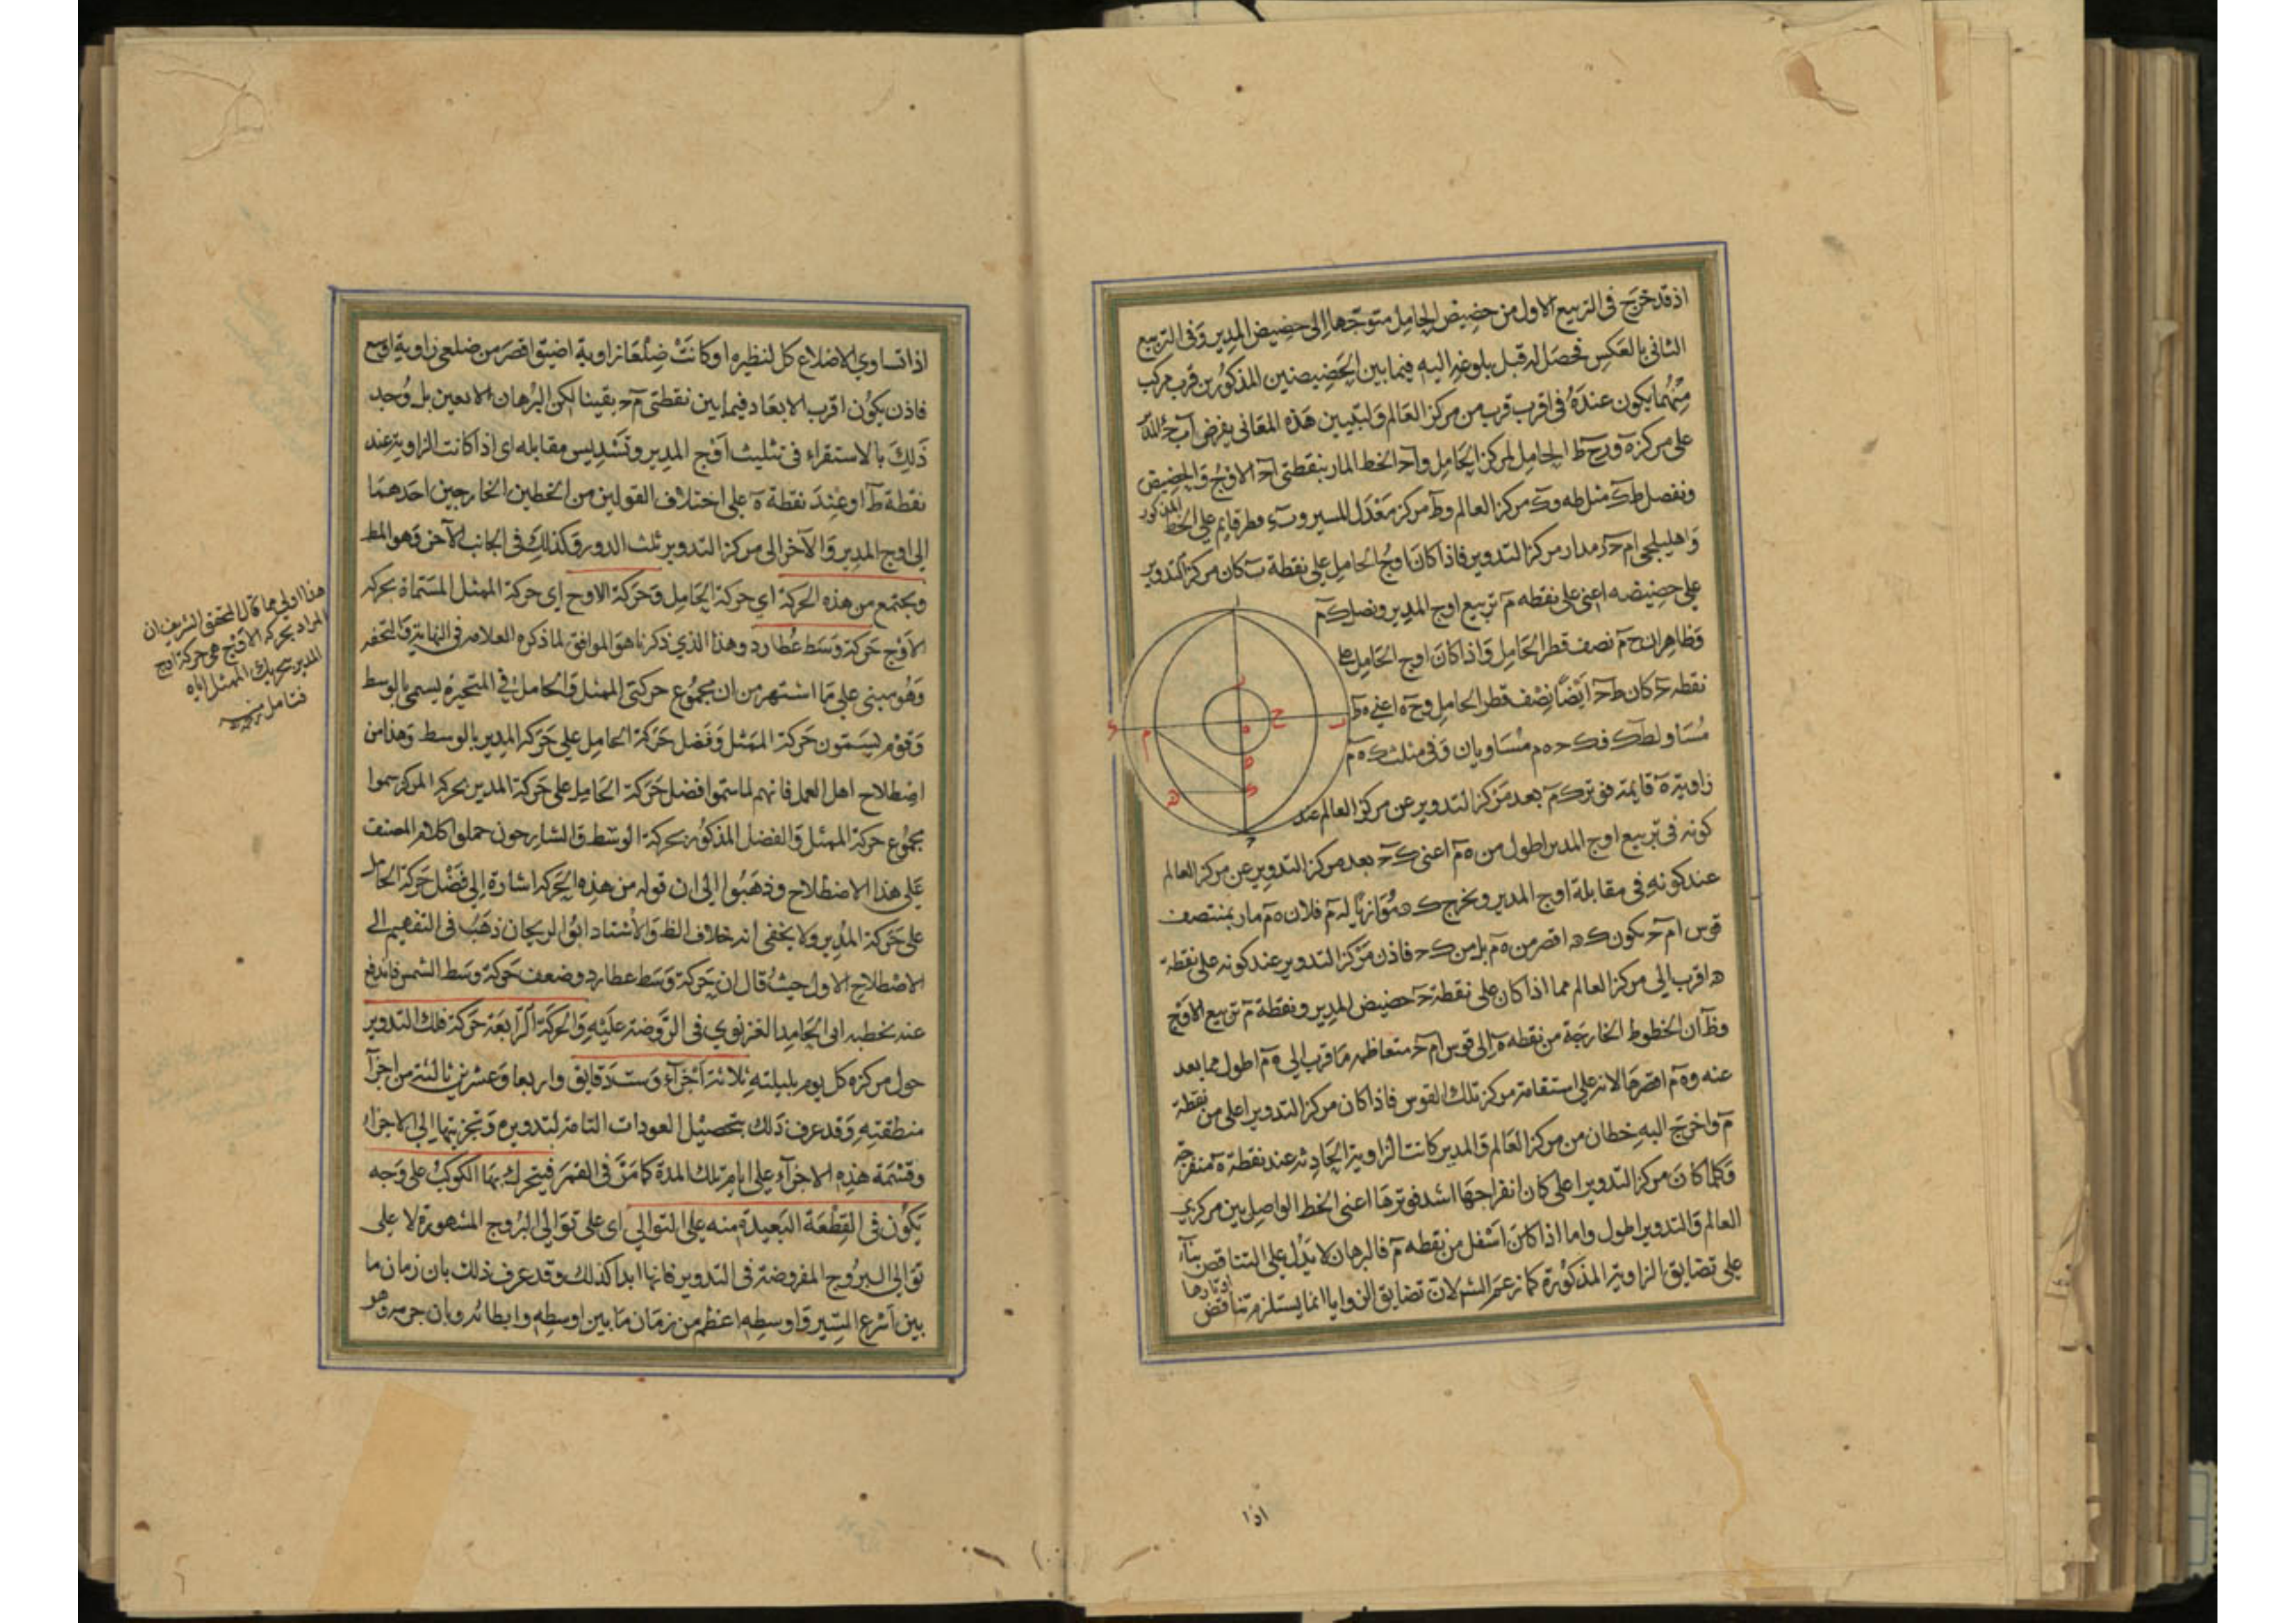 اذ قد خرج في التربيع الاول من حضيض الحامل متوجها الى حضيض المدير وفي التربيع
الثاني بالعكس فحصل له قبل بلوغه اليه فيما بين الحضيضين المذكورين قرب مركب
منهما يكون عنده في اقرب قرب من مركز العالم ولتبيين هذه المعاني يفرض
على مركز ه و الحامل لمركز الحامل و الخط المار بنقطتي ا ح الاوج والحضيض
ونفصل ط ك مثل ط ه و ك مركز العالم و ط مركز معدل المسير و قطر قايم على الخط المذكور
واهليلجي مدار مركز التدوير فاذا كان اوج الحامل على نقطة ب كان مركز التدوير
على حضيضه اعني على نقطه م تربيع اوج المدير ونصل ك م
وظاهر ان ح م نصف قطر الحامل واذا كان اوج الحامل على
نقطه كان ايضا نصف قطر الحامل و ح ه اعني ه ط
مساو لط ك مساويان وفي مثلث ك ه م
زاوية ه قايمة فوتر ك م بعد مركز التدوير عن مركز العالم عند
كونه في تربيع اوج المدير اطول من ه م اعني بعد مركز التدوير عن مركز العالم
عند كونه في مقابلة اوج المدير ونخرج موازيا له م فلان ه م مار بمنتصف
قوس يكون اقصر من ه م بل من فاذن مركز التدوير عند كونه على نقطة
اقرب الى مركز العالم مما اذا كان على نقطة حضيض المدير ونقطة م تربيع الاوج
وظ ان الخطوط الخارجة من نقطه ه الى قوس متعاظمه ما قرب الى ه م اطول مما بعد
عنه و ه م اقصرها لانه على استقامة مركز تلك القوس فاذا كان مركز التدوير اعلى من نقطة
م واخرج اليه خطان من مركز العالم والمدير كانت الزاوية الحادثه عند نقطة ه منفرجة
وكلما كان مركز التدوير اعلى كان انفراجها اشد فوترها اعني الخط الواصل بين مركزي
العالم والتدوير اطول واما اذا كان اسفل من نقطه م فالبرهان لا يدل على التناقص بناء
على تضايق الزاوية المذكورة كما زعم الشر لان تضايق الزوايا انما يستلزم تناقص اوتارها
اذا
اذا تساوي الاضلاع كل لنظيره او كانت ضلعا زاوية اضيق اقصر من ضلعي زاوية اوسع
فاذن يكون اقرب الابعاد فيما بين نقطتي م ح يقينا لكن البرهان لا يعين بل وجد
ذلك بالاستقراء في تثليث اوج المدير وتسديس مقابله اي اذا كانت الزاوية عند
نقطة ط او عند نقطة ه على اختلاف القولين من الخطين الخارجين احدهما
الى اوج المدير والآخر الى مركز التدوير ثلث الدور وكذلك في الجانب الآخر وهو المط
ويجتمع من هذه الحركة اي حركة الحامل وحركة الاوج اي حركة الممثل المسماة بحركة
الاوج حركة وسط عطارد وهذا الذي ذكرناه هو الموافق لما ذكره العلامه في النهاية والتحفه
وهو مبني على ما اشتهر من ان مجموع حركتي الممثل والحامل في المتحيره يسمى بالوسط
وقوم يسمون حركة الممثل وفضل حركة الحامل على حركة المدير بالوسط وهذا من
اصطلاح اهل العمل فانهم لما سموا فضل حركة الحامل على حركة المدير بحركة المركز سموا
مجموع حركة الممثل والفضل المذكور بحركة الوسط والشارحون حملوا كلام المصنف
على هذا الاصطلاح وذهبوا الى ان قوله من هذه الحركه اشارة الى فضل حركة الحامل
على حركة المدير ولا يخفى انه خلاف الظ والاستاد ابو الريحان ذهب في التفهيم الى
الاصطلاح الاول حيث قال ان حركة وسط عطارد وضعف حركة وسط الشمس فاندفع
عنه تخطيه ابي الحامد الغزنوي في الروضة عليه والحركة الرابعة حركة فلك التدوير
حول مركزه كل يوم بليلته ثلاثة اجزاء وست دقايق واربعا وعشرين ثالثة من اجزاء
منطقته وقد عرف ذلك بتحصيل العودات التامة لتدويره وتجزيتها الى الاجزاء
وقسمة هذه الاجزاء على ايام تلك المدة كما مر في القمر فيتحرك بها الكوكب على وجه
يكون في القطعة البعيدة منه على التوالي اي على توالي البروج المشهورة لا على
توالي البروج المفروضة في التدوير فانها ابدا كذلك وقد عرف ذلك بان زمان ما
بين اسرع السير واوسطه اعظم من زمان ما بين اوسطه وابطائه وبان جرمه وهو
هذا اولى مما قال المحقق الشريف ان
المراد بحركة الاوج هي حركة اوج
المدير بتحريك الممثل اياه
فتامل منه